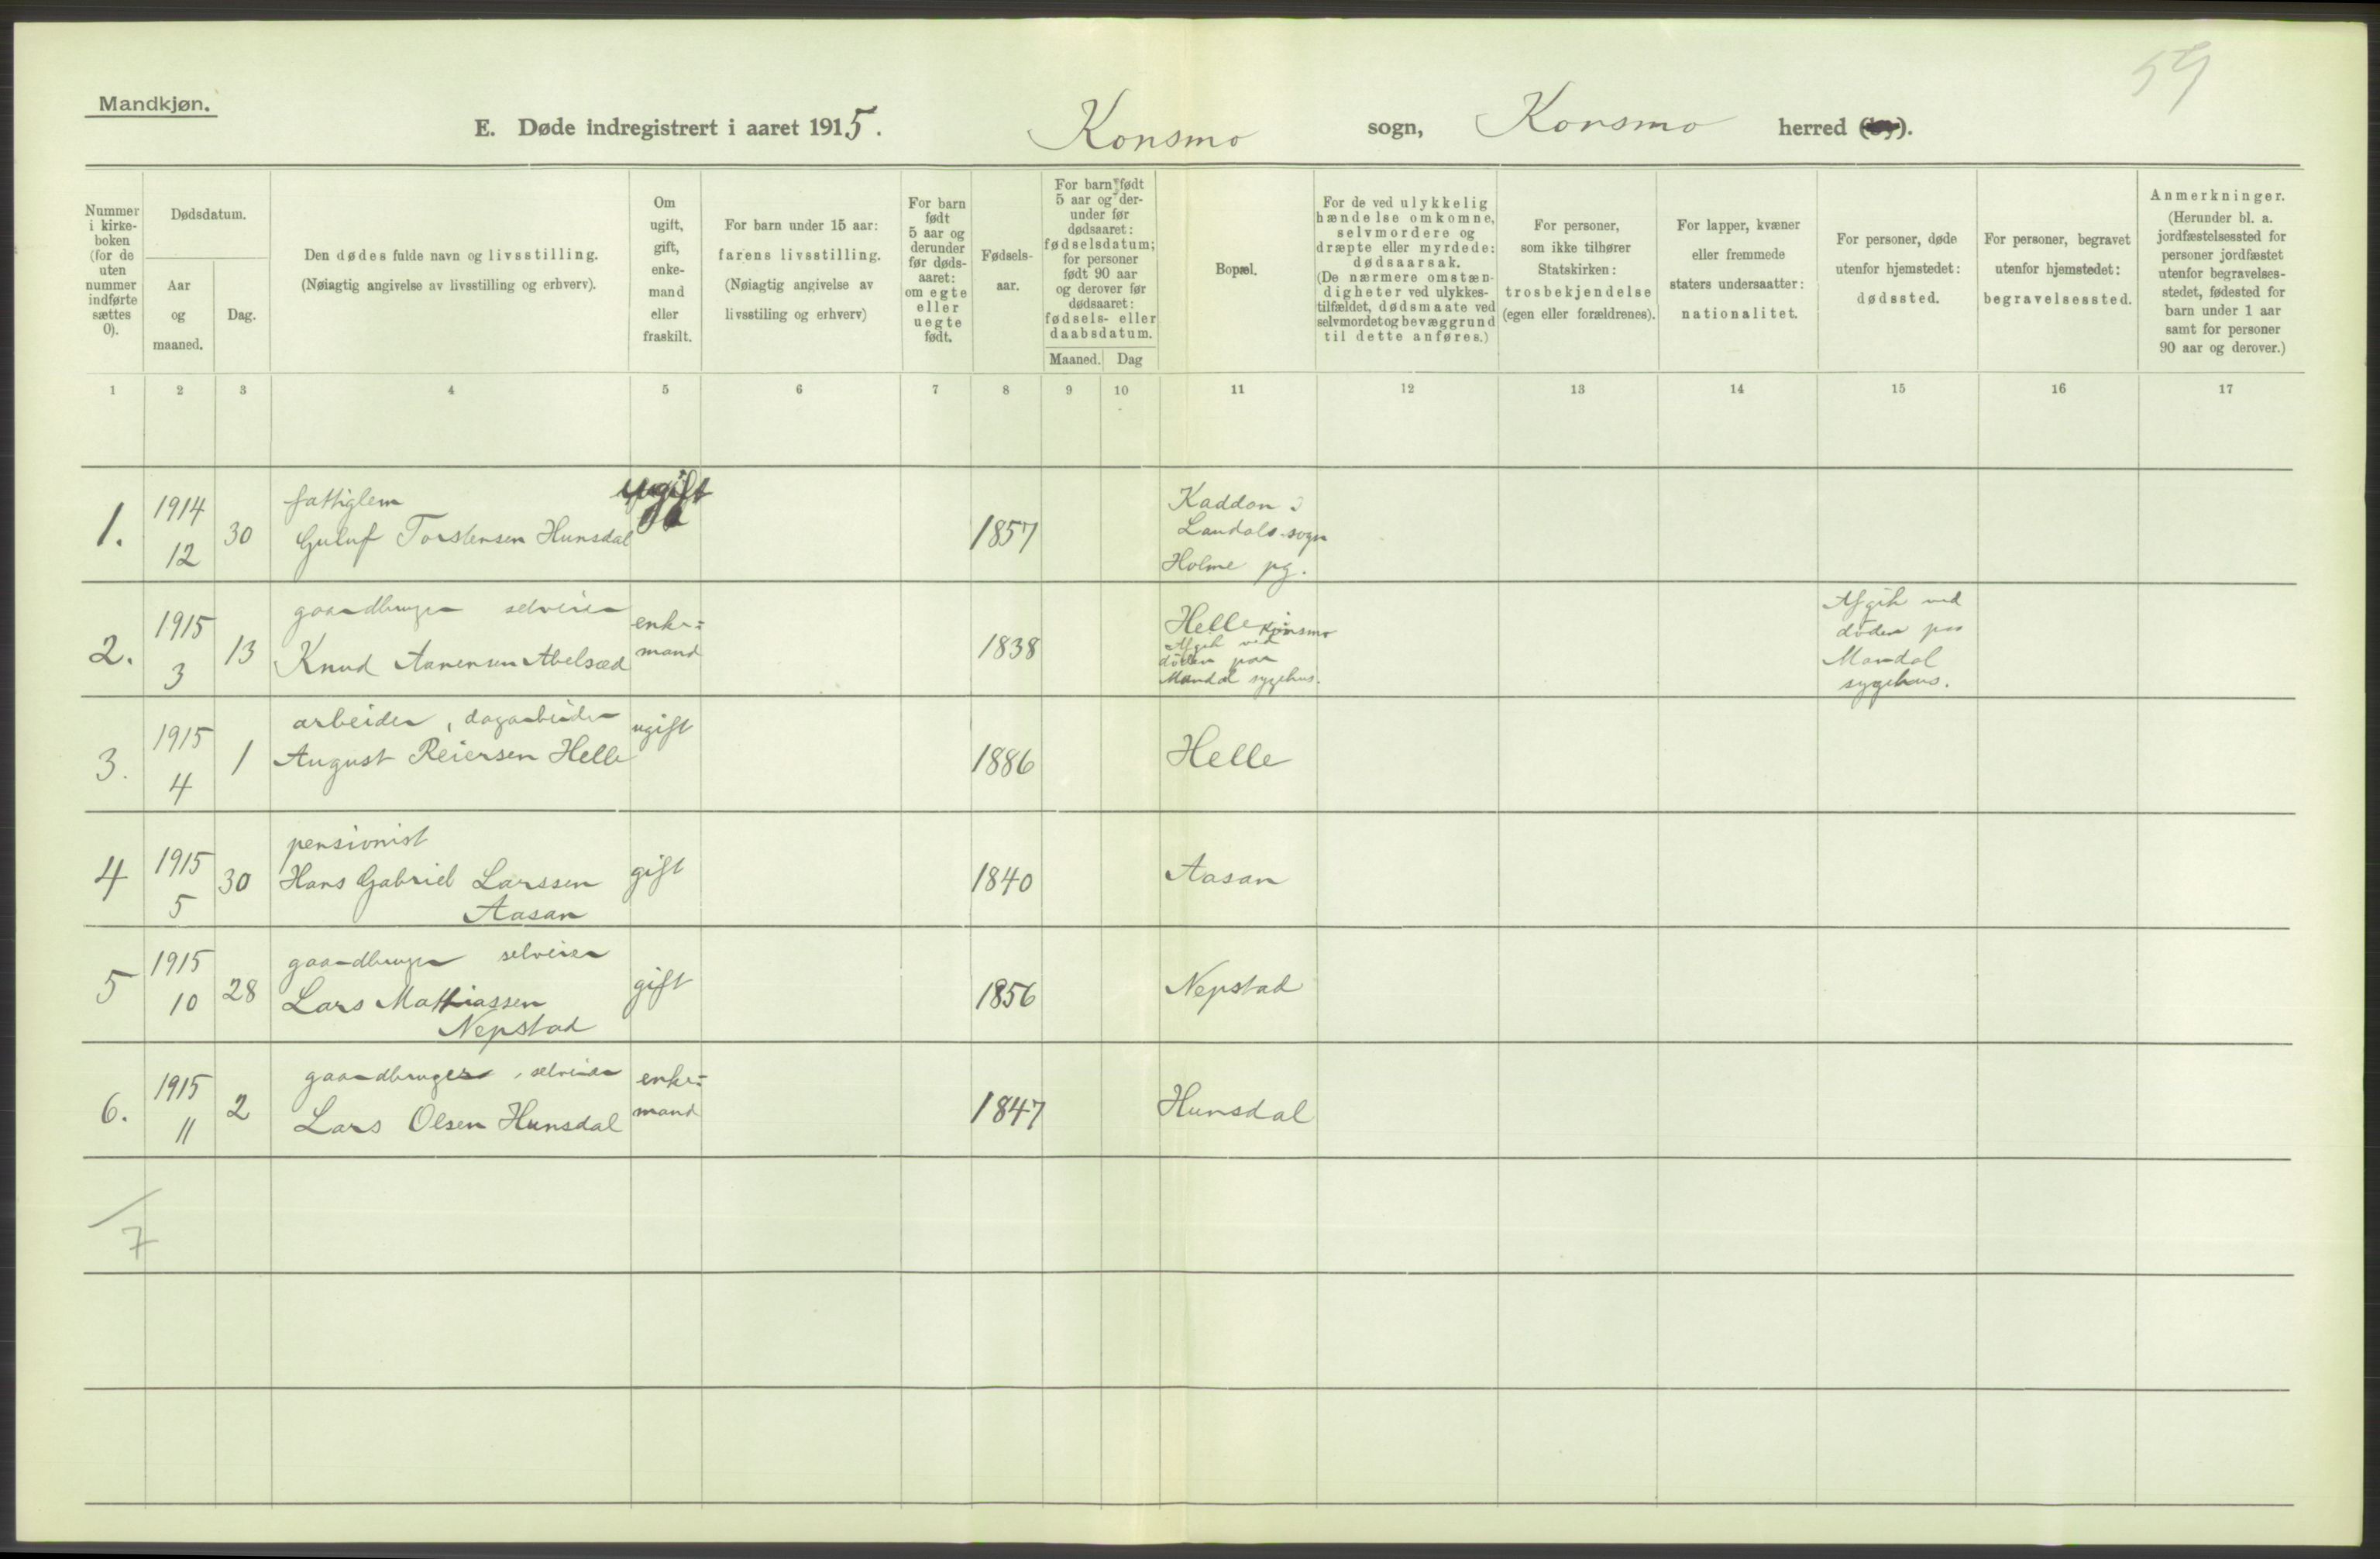 59
Mandkjøn.
E. Døde indregistrert i aaret 1915. Konsmo sogn, Konsmo herred
Nummer i kirke-boken (for de uten nummer indførte sættes 0).
Dødsdatum.
Aar og maaned.
Dag.
Den dødes fulde navn og livsstilling.
(Nøiagtig angivelse av livsstilling og erhverv).
Om ugift, gift, enke-mand eller fraskilt.
For barn under 15 aar: farens livsstilling.
(Nøiagtig angivelse av livsstiling og erhverv)
For barn født 5 aar og derunder før døds-aaret: om egte eller uegte født.
Fødsels-aar.
For barn født 5 aar og der-under før dødsaaret: fødselsdatum; for personer født 90 aar og derover før dødsaaret: fødsels- eller daabsdatum.
Maaned.
Dag
Bopæl.
For de ved ulykkelig hændelse omkomne, selvmordere og dræpte eller myrdede: dødsaarsak.
(De nærmere omstæn-digheter ved ulykkes-tilfældet, dødsmaate ved selvmordet og bevæggrund til dette anføres.)
For personer, som ikke tilhører Statskirken: trosbekjendelse (egen eller forældrenes).
For lapper, kvæner eller fremmede staters undersaatter: nationalitet.
For personer, døde utenfor hjemstedet: dødssted.
For personer, begravet utenfor hjemstedet: begravelsessted.
Anmerkninger.
(Herunder bl. a. jordfæstelsessted for personer jordfæstet utenfor begravelses-stedet, fødested for barn under 1 aar samt for personer 90 aar og derover.)
1 2 3 4 5 6 7 8 9 10 11 12 13 14 15 16 17
1. 1914 12 30
fattiglem
Guluf Torstensen Hunsdal
ugift
1857
Kaddan i
Laudals sogn
Holme pg.
2. 1915 3 13
gaardbruger selveier
Knud Aanensen Abelsæd
enke-
mand
1838
Helle Konsmo
Afgik ved
døden paa
Mandal sygehus.
Afgik ved
døden paa
Mandal
sygehus.
3. 1915 4 1
arbeider, dagarbeider
August Reiersen Helle
ugift
1886
Helle
4 1915 5 30
pensionist
Hans Gabriel Larssen
Aasan
gift
1840
Aasan
5 1915 10 28
gaardbruger selveier
Lars Mathiassen
Nepstad
gift
1856
Nepstad
6. 1915 11 2
gaardbruger, selveier
Lars Olsen Hunsdal
enke-
mand
1847
Hunsdal
7